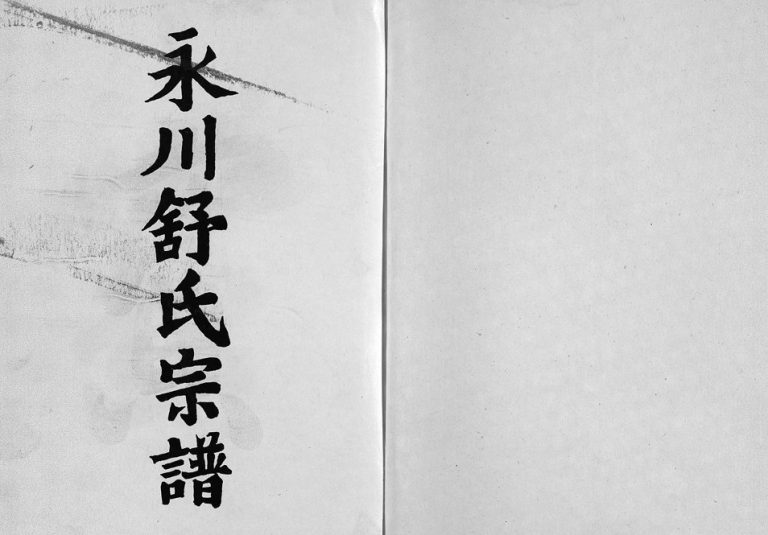 永川舒氏宗譜